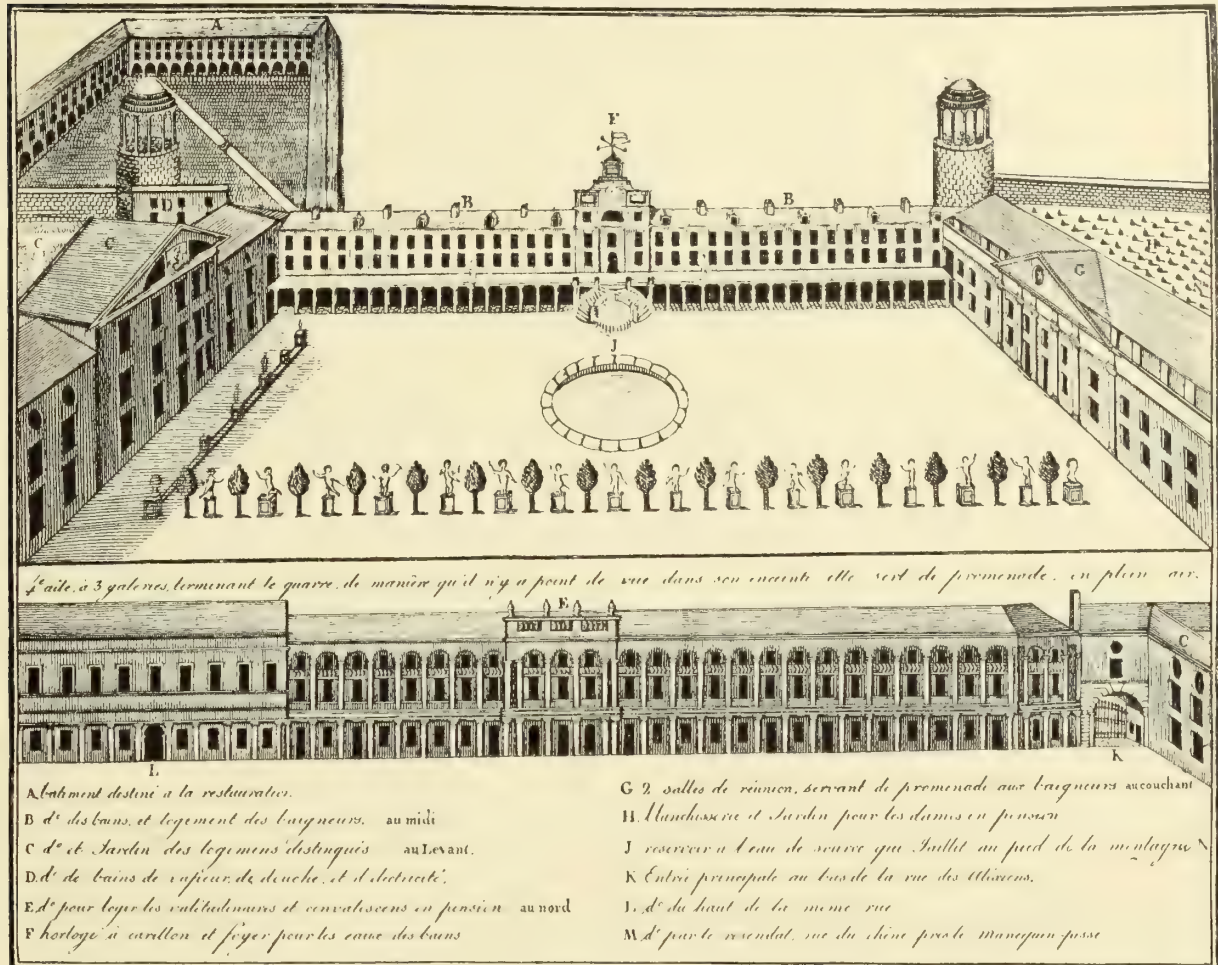 A
F
B
B
D
C
C
G
H
J
4e aile, à 3 galeries, terminant le quarré, de manière qu'il n'y a point de vue dans son enceinte elle sert de promenade, en plein air.
E
C
M
L
K
A batiment destiné a la restauration.
B do des bains, et logement des baigneurs, au midi
C do et Jardin des logemens distingués au Levant.
D. do de bains de vapeur, de douche, et d'électricité.
E. do pour loger les valitudinaires et convaliscens en pension au nord
F horloge à carillon et foyer pour les eaux des bains
G 2 salles de réunion, servant de promenade aux baigneurs au couchant
H. Blanchisserie et Jardin pour les dames en pension
J reservoir a l'eau de source que Jaillit au pied de la montagne
K Entrée principale au bas de la rue des
L. do du haut de la meme rue
M do par le rue du chêne pres le Mannequin-pisse